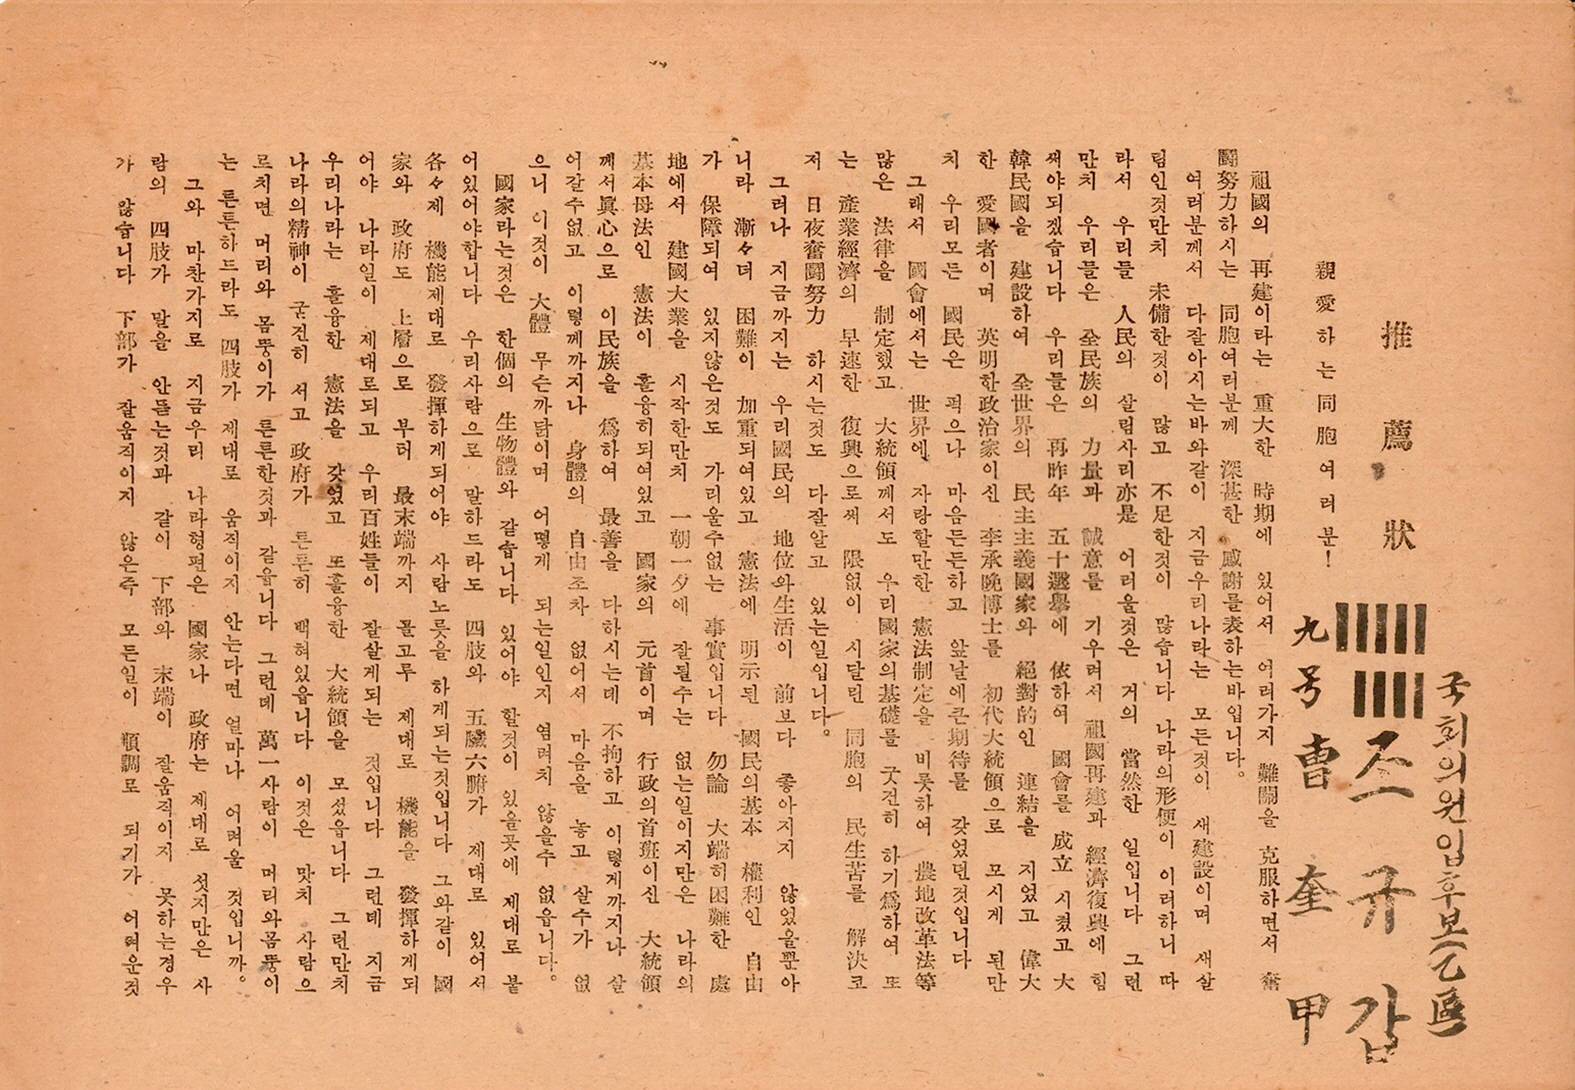 국회의원입후보(乙區)
조규갑
九号 曹奎甲
推薦狀
親愛하는同胞여러분!
祖國의 再建이라는 重大한 時期에 있어서 여러가지 難關을 克服하면서 奮
鬪努力하시는 同胞여러분께 深甚한 感謝를表하는바입니다。
여러분께서 다잘아시는바와같이 지금우리나라는 모든것이 새建設이며 새살
림인것만치 未備한것이 많고 不足한것이 많습니다 나라의形便이 이러하니 따
라서 우리들 人民의 살림사리亦是 어려울것은 거의 當然한 일입니다 그런
만치 우리들은 全民族의 力量과 誠意를 기우려서 祖國再建과 經濟復興에 힘
써야되겠습니다 우리들은 再昨年 五十選擧에 依하여 國會를 成立 시켰고 大
韓民國을 建設하여 全世界의 民主主義國家와 絕對的인 連結을 지었고 偉大
한 愛國者이며 英明한政治家이신 李承晩博士를 初代大統領으로 모시게 된만
치 우리모든 國民은 퍽으나 마음든든하고 앞날에큰期待를 갖었던것입니다
그래서 國會에서는 世界에 자랑할만한 憲法制定을 비롯하여 農地改革法等
많은 法律을 制定했고 大統領께서도 우리國家의基礎를 굿건히 하기爲하여 또
는 産業經濟의 早速한 復興으로써 限없이 시달린 同胞의 民生苦를 解決코
저 日夜奮鬪努力 하시는것도 다잘알고 있는일입니다。
그러나 지금까지는 우리國民의 地位와生活이 前보다 좋아지지 않었을뿐아
니라 漸々더 困難이 加重되여있고 憲法에 明示된 國民의基本 權利인 自由
가 保障되여 있지않은것도 가리울수없는 事實입니다 勿論 大端히困難한 處
地에서 建國大業을 시작한만치 一朝一夕에 잘될수는 없는일이지만은 나라의
基本母法인 憲法이 훌융히되여있고 國家의 元首이며 行政의首班이신 大統領
께서眞心으로 이民族을 爲하여 最善을 다하시는데 不拘하고 이렇게까지나 살
어갈수없고 이렇께까지나 身體의 自由조차 없어서 마음을 놓고 살수가 없
으니 이것이 大體 무슨까닭이며 어떻게 되는일인지 염려치 않을수 없읍니다。
國家라는것은 한個의 生物體와 같습니다 있어야 할것이 있을곳에 제대로 붙
어있어야합니다 우리사람으로 말하드라도 四肢와 五臟六腑가 제대로 있어서
各々제 機能제대로 發揮하게되어야 사람노릇을 하게되는것입니다 그와같이 國
家와 政府도 上層으로 부터 最末端까지 꼴고루 제대로 機能을 發揮하게되
어야 나라일이 제대로되고 우리百姓들이 잘살게되는 것입니다 그런데 지금
우리나라는 훌융한 憲法을 갖었고 또훌융한 大統領을 모셨읍니다 그런만치
나라의精神이 굳건히 서고 政府가 튼튼히 백혀있읍니다 이것은 맛치 사람으
로치면 머리와 몸뚱이가 튼튼한것과 같읍니다 그런데 萬一사람이 머리와몸뚱이
는 튼튼하드라도 四肢가 제대로 움직이지 안는다면 얼마나 어려울 것입니까。
그와 마찬가지로 지금우리 나라형편은 國家나 政府는 제대로 섯지만은 사
람의 四肢가 말을 안듣는것과 같이 下部와 末端이 잘움직이지 못하는경우
가 않습니다 下部가 잘움직이지 않은즉 모든일이 順調로 되기가 어려운것